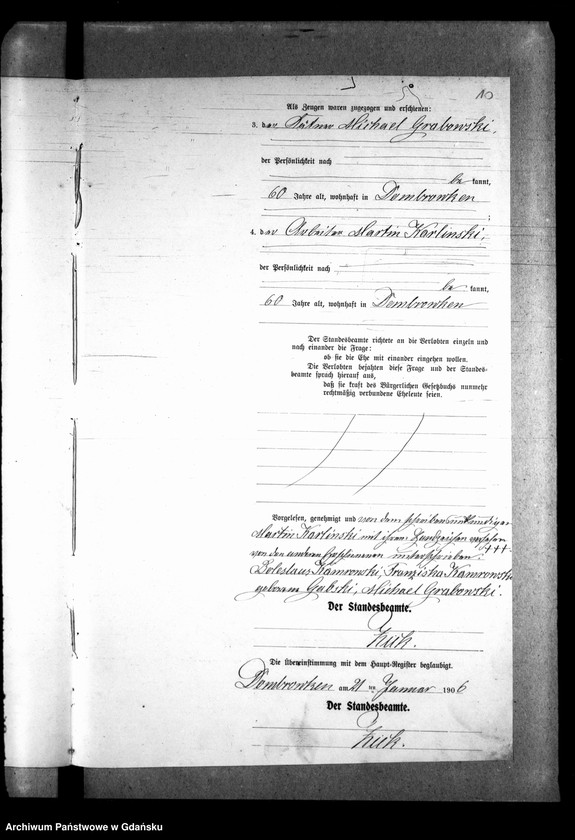 10
Als Zeugen waren zugezogen und erschienen:
3. der Kätner Michael Grabowski,
der Persönlichkeit nach
be kannt,
60 Jahre alt, wohnhaft in Dombrowken
;
4. der Arbeiter Martin Karlinski,
der Persönlichkeit nach
be kannt,
60 Jahre alt, wohnhaft in Dombrowken
Der Standesbeamte richtete an die Verlobten einzeln und
nach einander die Frage:
ob sie die Ehe mit einander eingehen wollen.
Die Verlobten bejahten diese Frage und der Standes-
beamte sprach hierauf aus,
daß sie kraft des Bürgerlichen Gesetzbuchs nunmehr
rechtmäßig verbundene Eheleute seien.
Vorgelesen, genehmigt und von dem schreibensunkundigen
Martin Karlinski mit ihrem Handzeichen versehen
+++
von den anderen Erschienenen unterschrieben.
Boleslaus Kamronski, Franziska Kamrowski
geborene Gabski, Michael Grabowski.
Der Standesbeamte.
Zuck.
Die Übereinstimmung mit dem Haupt-Register beglaubigt.
Dombrowken am 21 ten Januar 1906
Der Standesbeamte.
Zuck.
Archiwum Państwowe w Gdańsku